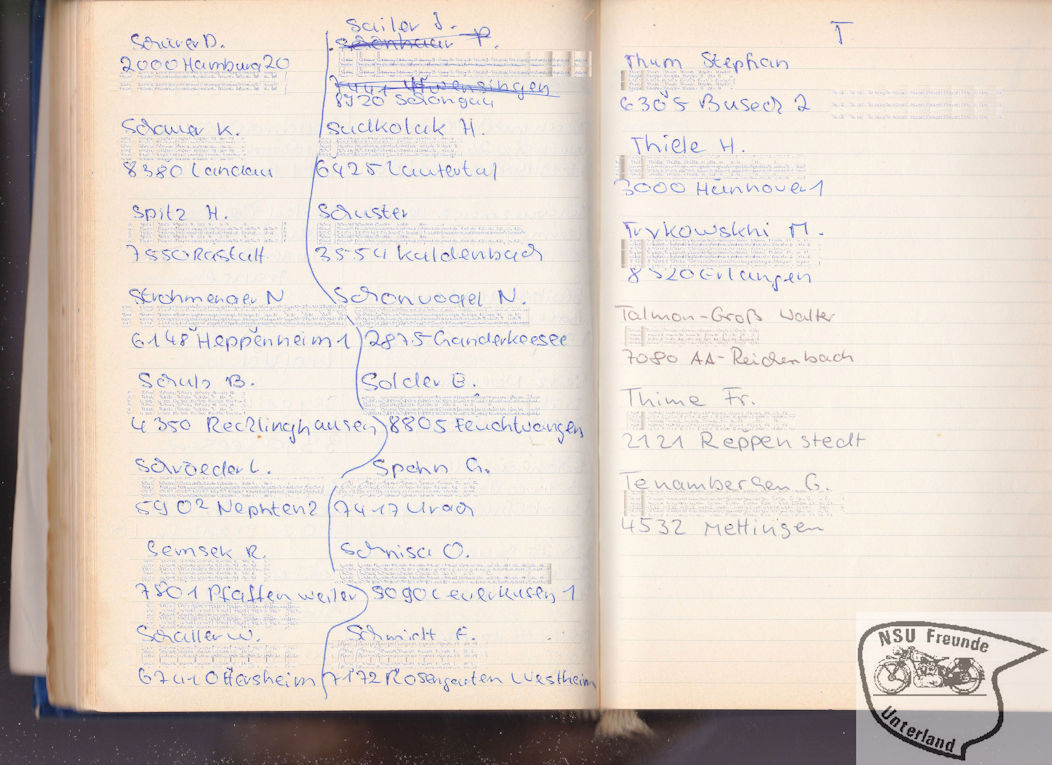 Schürer D.
2000 Hamburg 20
Schauer K.
8380 Landau
Spitz H.
7550 Rastatt
Strohmenger N
6148 Heppenheim 1
Schulz B.
4350 Recklinghausen
Schröeder L.
5902 Nephten 2
Semsek R.
7801 Pfaffenweiler
Schaller W.
6741 Ottersheim
Sailer J.
8920 Schongau
Sudkolak H.
6425 Lautertal
Schuster
Schönvogel N.
2875 Ganderkeesee
Solder E.
8805 Feuchtwangen
Spohn G.
7417 Urach
Schnisa O.
5090 Leverkusen 1
Schmidt E.
7172 Rosengarten Westheim
T
Thum Stephan
6305 Buseck 2
Thiele H.
3000 Hannover 1
Trykowskhi M.
8520 Erlangen
Talmon-Groß Walter
7080 AA-Reichenbach
Thime Fr.
2121 Reppenstedt
Tenambergen G.
4532 Mettingen
NSU Freunde
Unterland